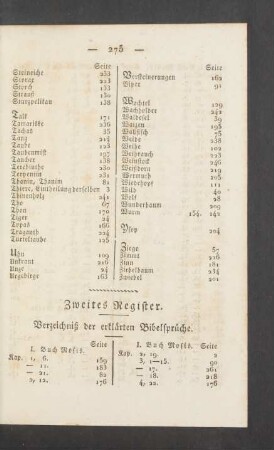 — 275 —
Seite
Steineiche 233
Storax 223
Storch 138
Strauß 135
Sturzpelikan 138
Talk 171
Tamariske 236
Tachas 25
Tanz 214
Taube 123
Taubenmist 197
Taucher 138
Terebinthe 230
Terpentin 231
Thiere, Eintheilung derselben 3
Thinenholz 241
Tho 67
Thon 170
Tiger 24
Topas 166
Traganth 224
Turteltaube 126
Uhu 109
Unkraut 226
Unze 24
Urgebirge 163
Seite
Versteinerungen 162
Viper 91
Wachtel 129
Wachholder 242
Waldesel 39
Waizen 195
Wallfisch 75
Weide
Weihe
Weihrauch
Weinstock
Wermuth
Wiedehopf
Wild
Wolf 28
Wunderbaum 209
Wurm 154. 142
Ysop 224
Ziege 57
Zimmt
Zinn 181
Zobel 201
Zweites Register.
Verzeichniß der erklärten Bibelsprüche.
I. Buch Mosis. Seite
Kap. 1, 6. 159
— 11. 183
— 21. 82
2, 12. 176
I. Buch Mosis. Seite
Kap. 2, 19. 2
3, 1—15. 90
— 17. 261
— 18. 218
4, 22. 176